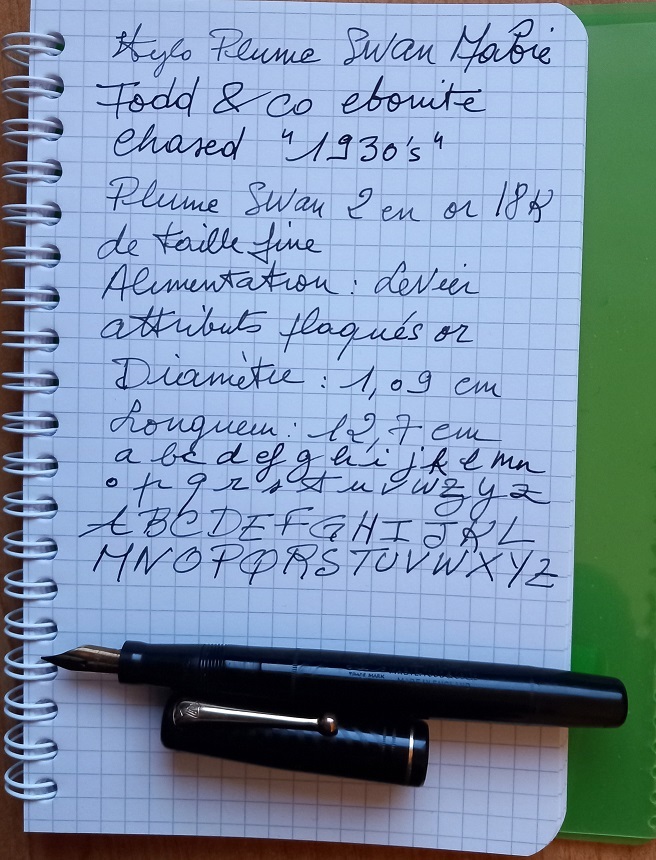 Stylo Plume Swan Mabie
Todd & co ebonite
Chased "1930's"
Plume Swan 2 en or 18K
de taille fine
Alimentation : Levier
attributs plaqués or
Diamètre : 1,09 cm
Longueur : 12,7 cm
a b c d e f g h i j k l m n
o p q r s t u v w z y z
A B C D E F G H I J K L
M N O P Q R S T U V W X Y Z
TRADE MARK